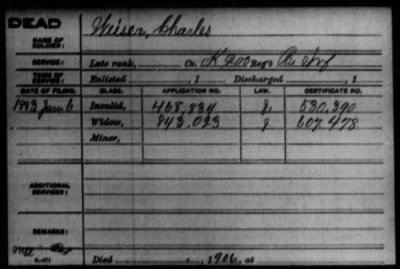 DEAD
NAME OF SOLDIER: Weiser, Charles
SERVICE: Late rank, Co. K, 200 Reg't Pa Inf
TERM OF SERVICE: Enlisted , 1 Discharged , 1
DATE OF FILING. CLASS. APPLICATION NO. LAW. CERTIFICATE NO.
1883 Jan 6 Invalid, 468,834 g. 530,390
Widow, 843,093 g 607,478
Minor,
ADDITIONAL SERVICES:
REMARKS:
Died , 1906, at